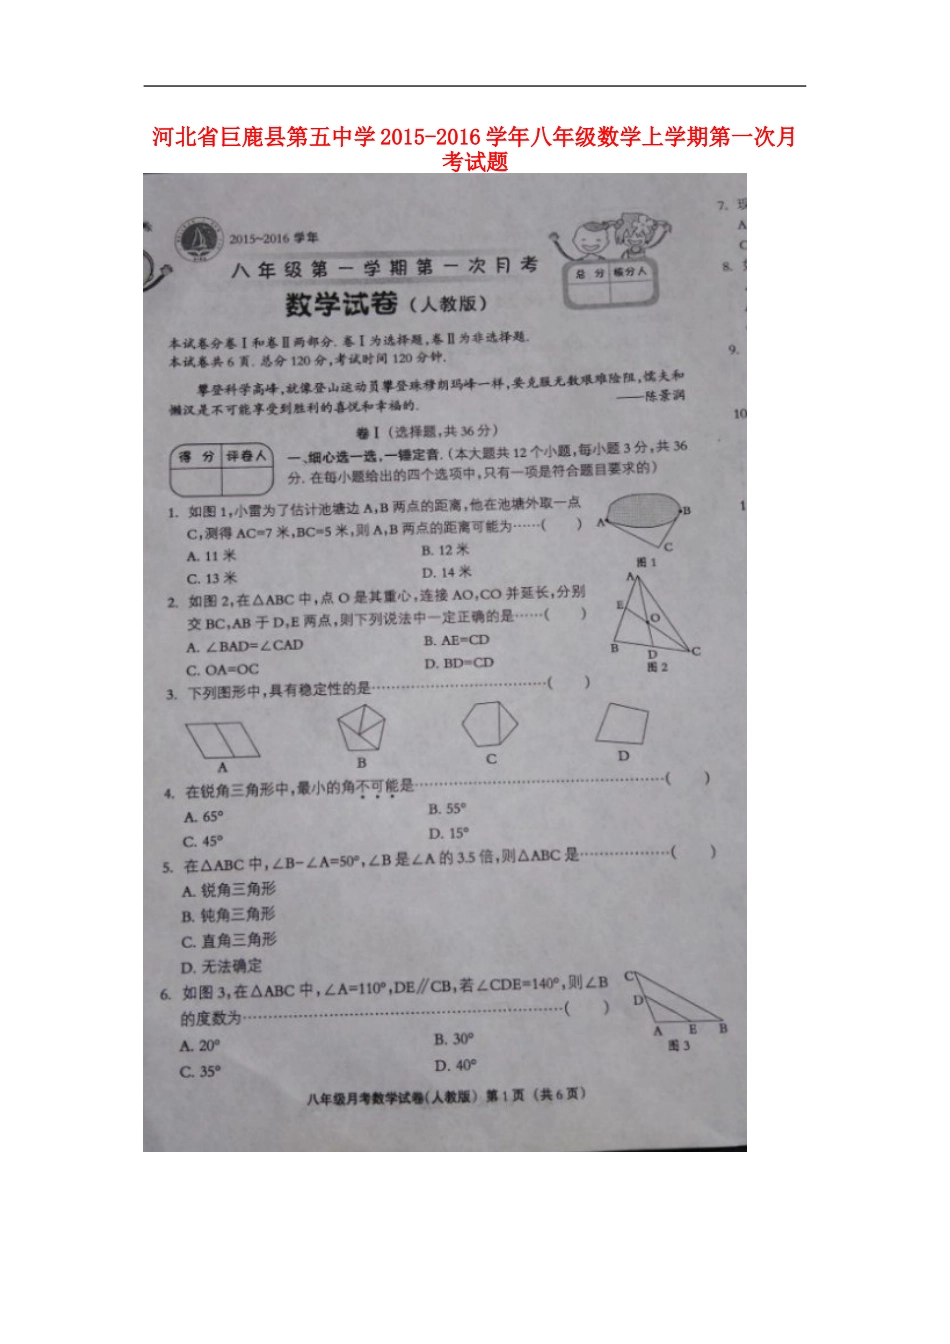 河北省巨鹿县第五中学2015-2016学年八年级数学上学期第一次月
考试题
2015~2016 学年
八年级第一学期第一次月考
数学试卷(人教版)
总 分 核分人
本试卷分卷Ⅰ和卷Ⅱ两部分. 卷Ⅰ为选择题,卷Ⅱ为非选择题.
本试卷共6页. 总分120分,考试时间120分钟.
攀登科学高峰,就像登山运动员攀登珠穆朗玛峰一样,要克服无数艰难险阻,懦夫和
懒汉是不可能享受到胜利的喜悦和幸福的.
——陈景润
卷Ⅰ(选择题,共36分)
得 分 评卷人
一、细心选一选,一锤定音.(本大题共12个小题,每小题3分,共36
分. 在每小题给出的四个选项中,只有一项是符合题目要求的)
1. 如图1,小雷为了估计池塘边A,B两点的距离,他在池塘外取一点
C,测得AC=7米,BC=5米,则A,B两点的距离可能为……( )
A. 11米 B. 12米
C. 13米 D. 14米
A B C
图1
2. 如图2,在△ABC中,点O是其重心,连接AO,CO并延长,分别
交BC,AB于D,E两点,则下列说法中一定正确的是……( )
A. ∠BAD=∠CAD B. AE=CD
C. OA=OC D. BD=CD
A E O B D C
图2
3. 下列图形中,具有稳定性的是……………………………( )
A B C D
4. 在锐角三角形中,最小的角不可能是………………………………………( )
A. 65° B. 55°
C. 45° D. 15°
5. 在△ABC中,∠B-∠A=50°,∠B是∠A的3.5倍,则△ABC是………………( )
A. 锐角三角形
B. 钝角三角形
C. 直角三角形
D. 无法确定
6. 如图3,在△ABC中,∠A=110°,DE∥CB,若∠CDE=140°,则∠B
的度数为……………………………………………………( )
A. 20° B. 30°
C. 35° D. 40°
C D A E B
图3
八年级月考数学试卷(人教版) 第1页(共6页)
7.
8.
9.
10